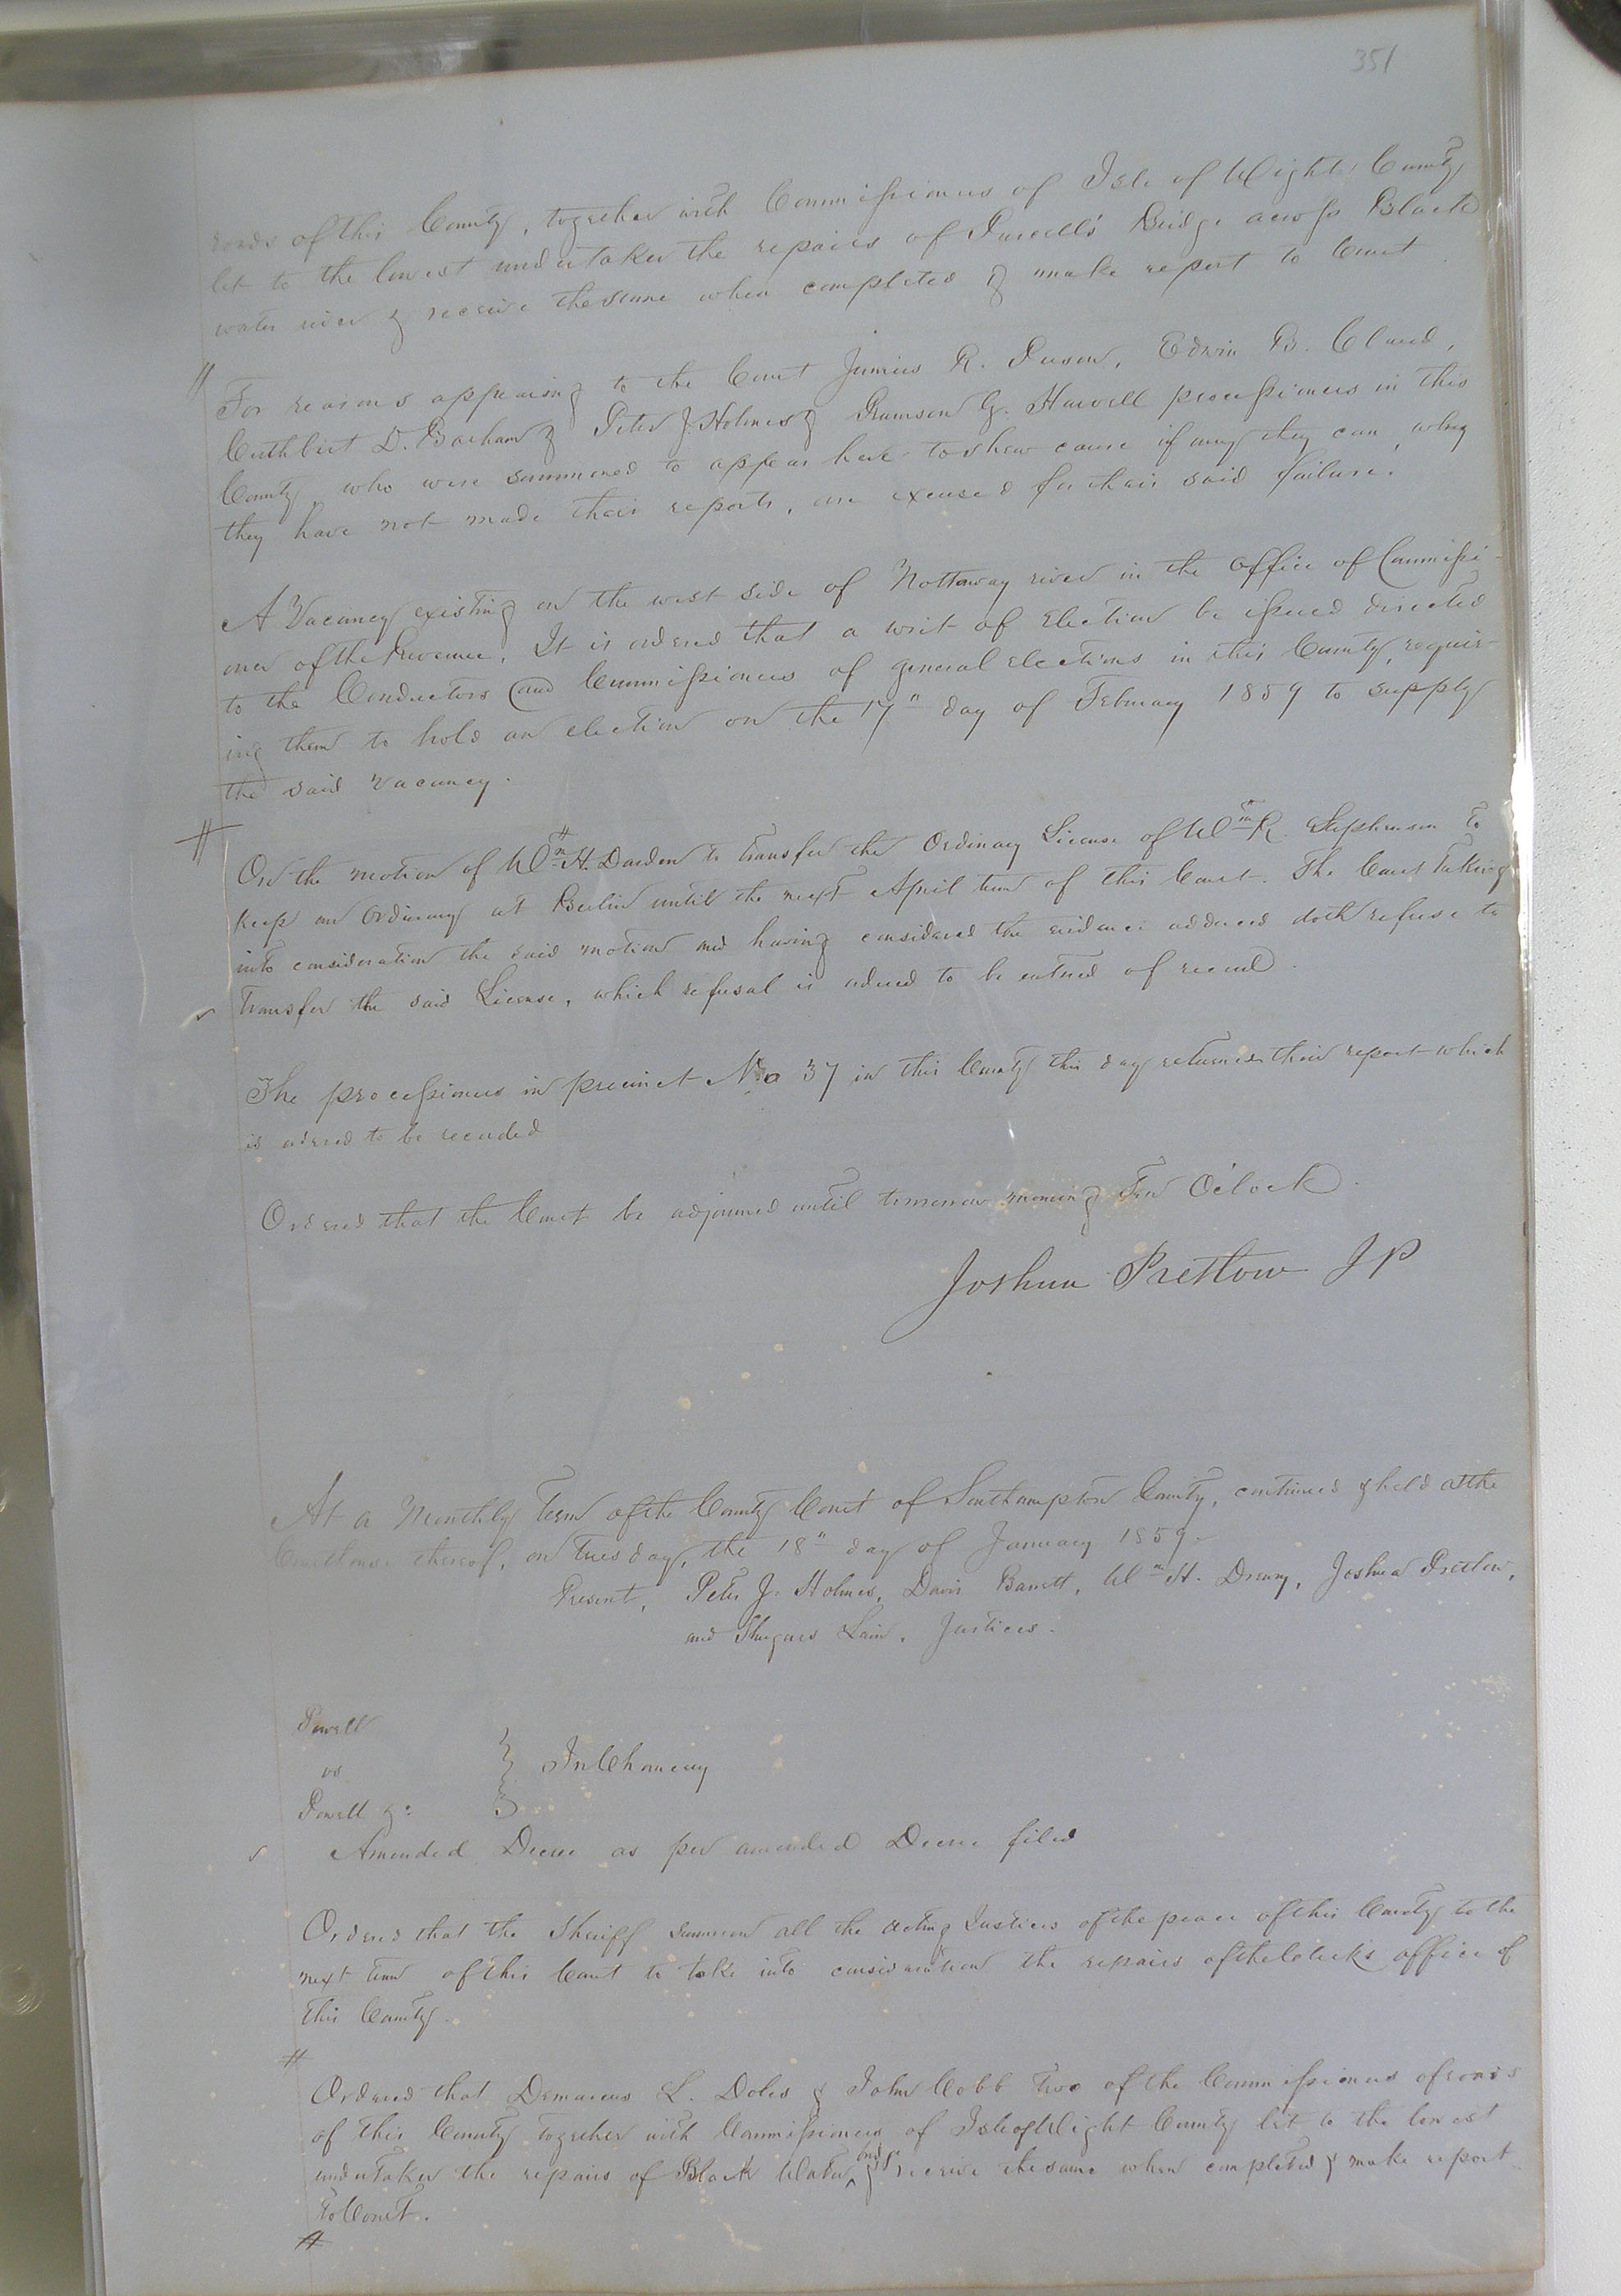 351
roads of this County, together with Commissioners of Isle of Wight County
let to the lowest undertaker the repairs of Purcell's Bridge across Black
water river & receive the same when completed & make report to Court.
For reasons appearing to the Court Junius R. Edwin B. Claud,
Cuthbert D. Barham & Peter J. Holmes & G. Harrell processioners in this
County, who were summoned to appear here to shew cause if any they can, why
they have not made their reports, are excused for their said failure.
A Vacancy existing on the west side of Nottoway river in the office of Commissi-
oner of the Revenue, It is ordered that a writ of Election be issued directed
to the Conductors and Commissioners of general elections in this County, requir-
ing them to hold an election on the 17" day of February 1859 to supply
the said vacancy.
On the motion of Wm H. Darden to transfer the Ordinary License of Wm R. Stephenson to
keep an Ordinary at Berlin until the next April term of this Court. The Court taking
into consideration the said motion and having considered the evidence adduced doth refuse to
transfer the said License, which refusal is ordered to be entered of record.
The processioners in precinct No 37 in this County this day returned their report which
is ordered to be recorded
Ordered that the Court be adjourned until tomorrow morning Ten O'clock.
Joshua Pretlow JP
At a Monthly Term of the County Court of Southampton County, continued & held at the
Courthouse thereof, on Tuesday, the 18" day of January 1859.
Present, Peter J. Holmes, Davis Barrett, Wm H. Drewry, Joshua Pretlow,
and Shugars Lain, Justices.
Powell
vs
} In Chancery
Powell &c
Amended Decree as per amended Decree filed
Ordered that the Sheriff summon all the acting Justices of the peace of this County to the
next term of this Court to take into consideration the repairs of the clerk's office of
this County.
Ordered that Demarcus L. Doles & John Cobb two of the Commissioners of roads
of this County together with Commissioners of Isle of Wight County let to the lowest
undertaker the repairs of Black Water ^ bridge & receive the same when completed & make report
to Court.